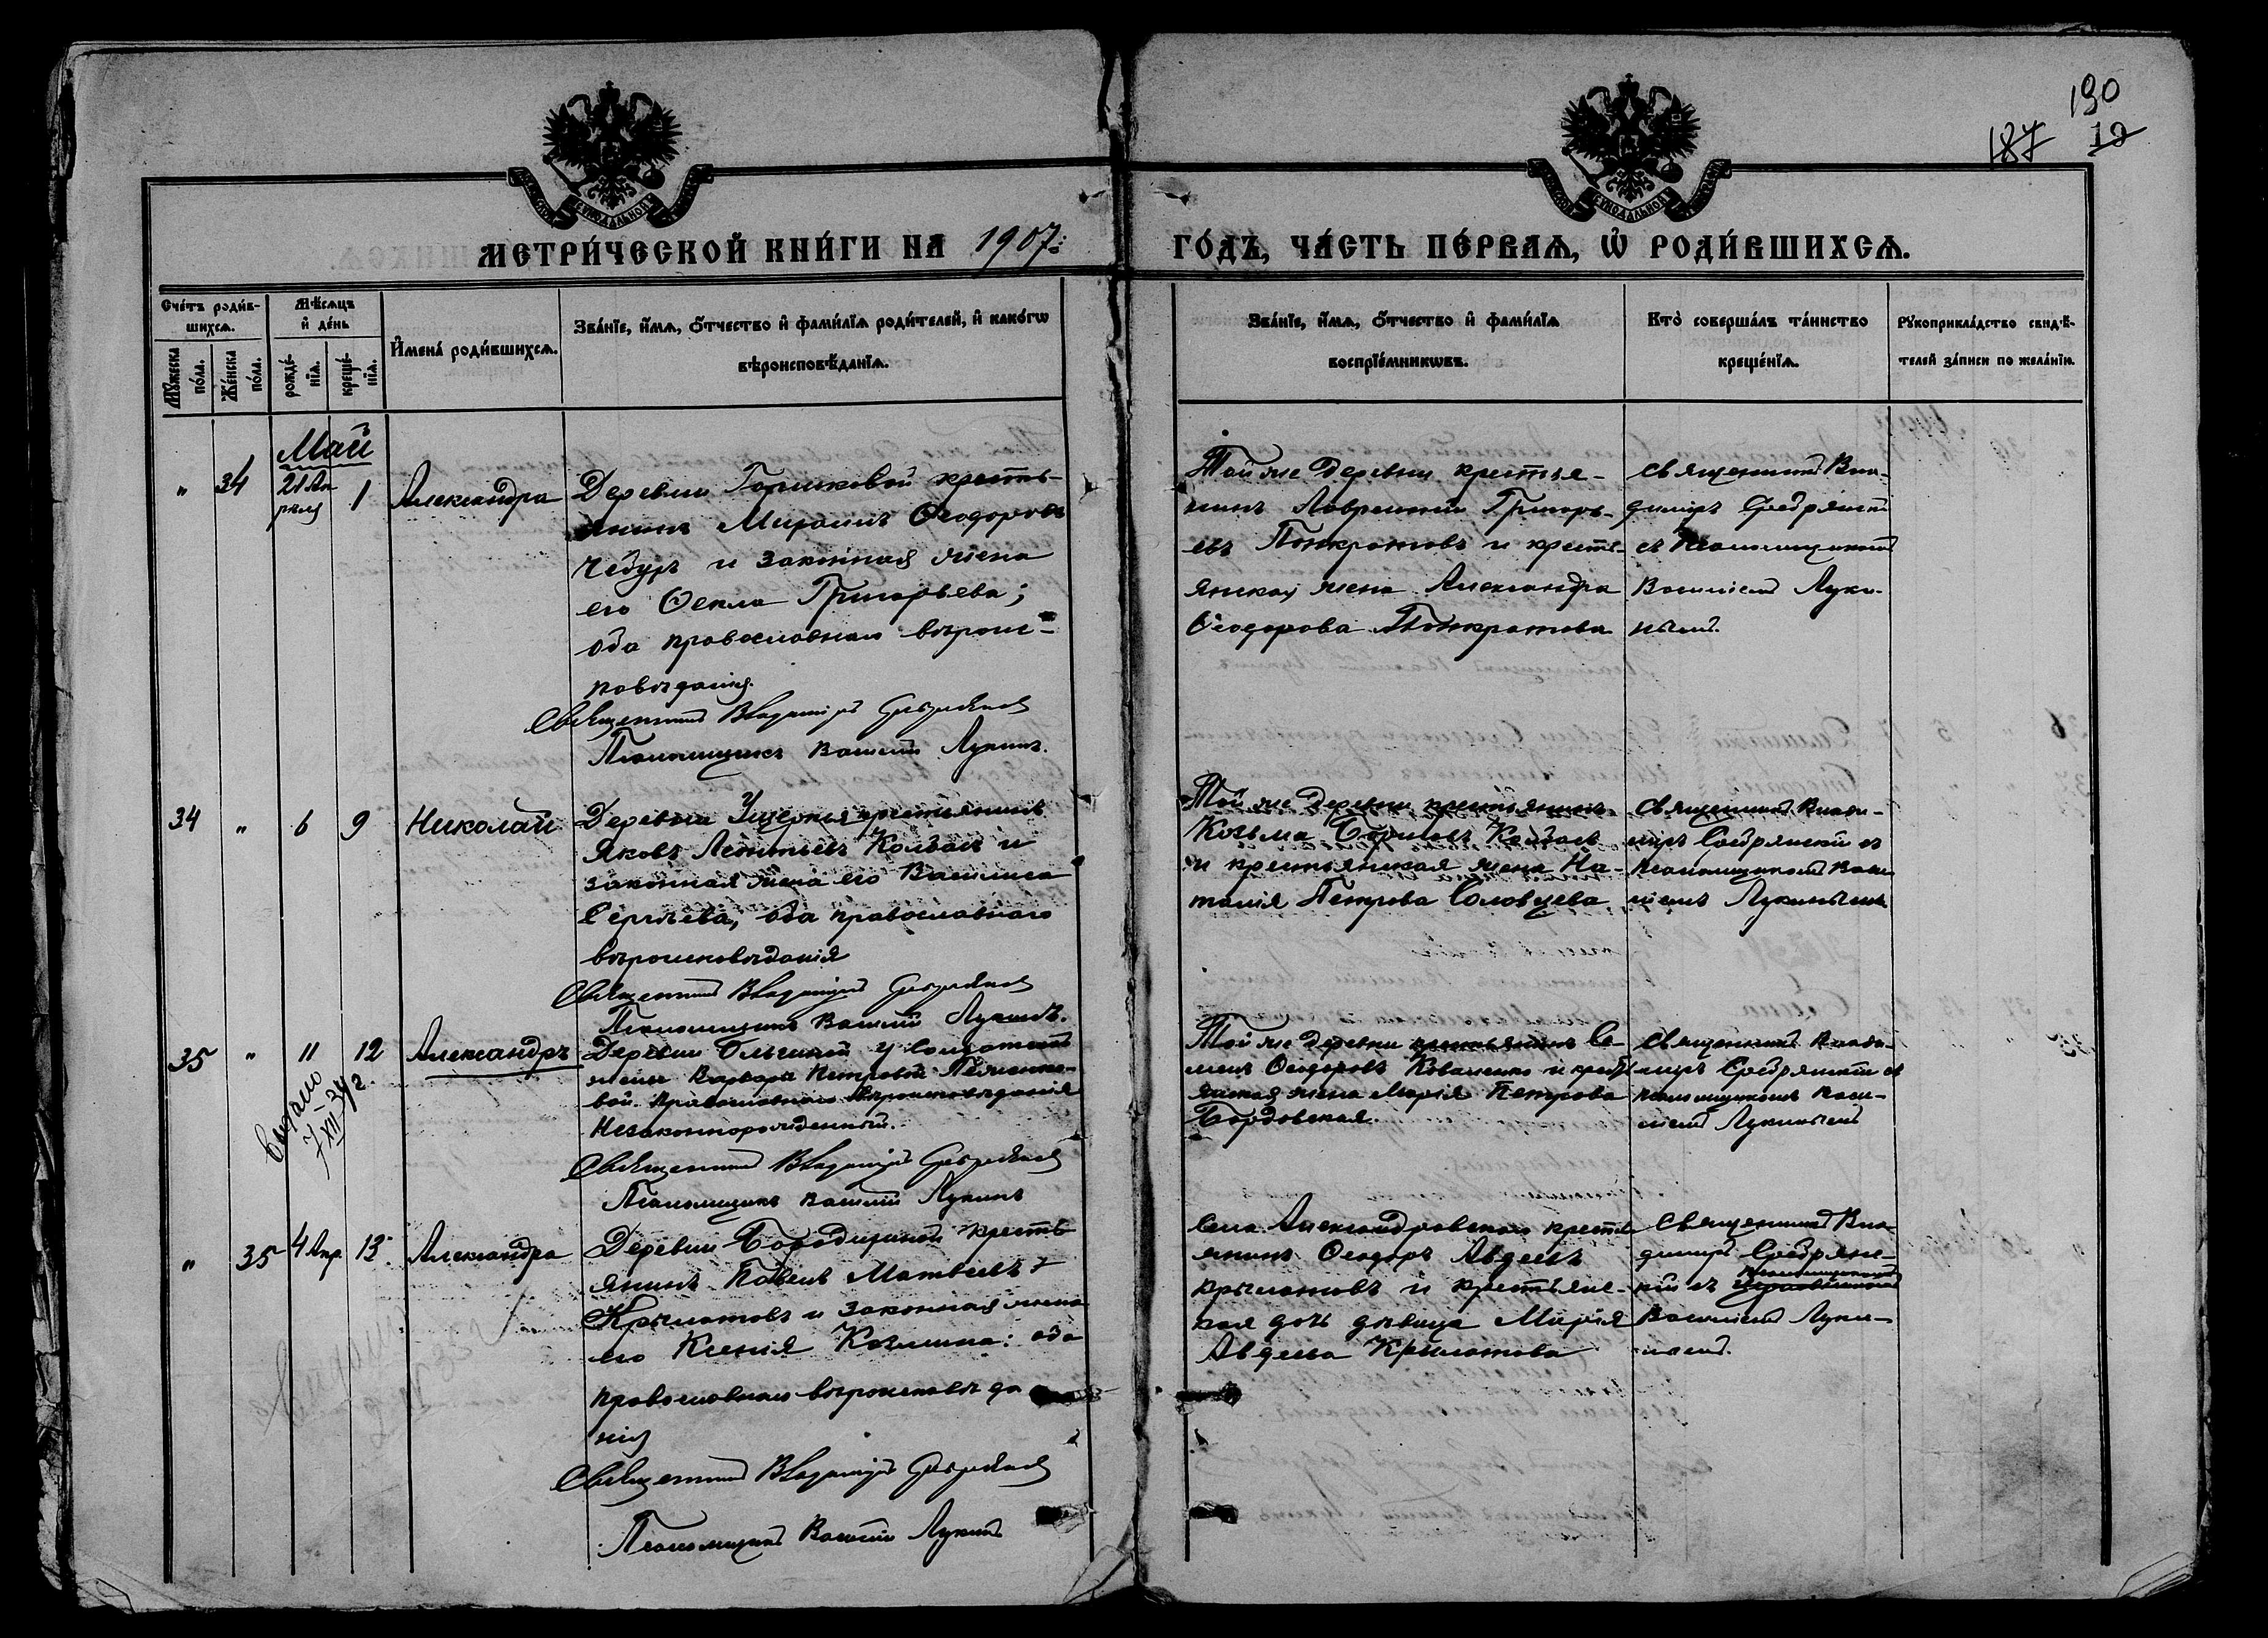 190
187 19
МЕТРИ́ЧЕСКОЙ КНИ́ГИ НА 1907: ГО́ДЪ, ЧА́СТЬ ПЕ́РВАѦ, Ѡ РОДИ́ВШИХСѦ.
Сче́тъ роди́в-
шихсѧ.
Мꙋ́жеска по́ла.
Же́нска по́ла.
Мѣ́сѧцъ
и де́нь
рожде́-
нїѧ.
креще́-
нїѧ.
Имена̀ роди́вшихсѧ.
Зва́нїе, и́мѧ, ѻ́тчество и фами́лїѧ роди́телей, и како́гѡ
вѣроисповѣ́данїѧ.
Зва́нїе, и́мѧ, ѻ́тчество и фами́лїѧ
воспрїе́мникѡвъ.
Кто̀ соверша́лъ та́инство
креще́нїѧ.
Рꙋкоприкла́дство свидѣ́-
телей за́писи по жела́нїю.
Май
" 34 21 Ап
рѣля 1 Александра
Деревни Горшковой кресть-
янинъ Миронъ Ѳеодоровъ
Чебуръ и законная жена
его Ѳекла Григорьева;
оба православнаго вѣроис-
повѣданія.
Священникъ Владиміръ
Псаломщикъ Василій Лукинъ.
Той же деревни крестья-
нинъ Лаврентій Григорь-
евъ Панкратовъ и кресть-
янская жена Александра
Ѳеодорова Панкратова
Священникъ Вла-
диміръ
съ псаломщикомъ
Василіемъ Луки-
нымъ.
34 " 6 9 Николай
Деревни крестьянинъ
Яковъ Леонтьевъ и
законная жена его Василиса
Сергѣева, оба православнаго
вѣроисповѣданія
Священникъ Владиміръ
Псаломщикъ Василій Лукинъ.
Той же деревни крестьянинъ
Козьма Борисовъ
и крестьянская жена На-
талія Петрова Соловцева
Священникъ Влади-
міръ съ
псаломщикомъ Васи-
ліемъ Лукинымъ
35 " 11 12 Александръ
Выдано
7 XII 34 г.
Деревни Ольгиной у солдатской
жены Варвары Петровой
вой православнаго вѣроисповѣданія
Незаконнорожденный.
Священникъ Владиміръ
Псаломщикъ Василій Лукинъ
Той же деревни крестьянинъ Се-
менъ Ѳеодоровъ Коваленко и кресть-
янская жена Марія Петрова
Бордовская.
Священникъ Влади-
міръ съ
псаломщикомъ Васи-
ліемъ Лукинымъ
" 35 4 Апр 13. Александра
Деревни Бородициной кресть-
янинъ Павелъ Матвѣевъ
Крылатовъ и законная жена
его Ксенія Козьмина: оба
православнаго вѣроисповѣда
нія
Священникъ Владиміръ
Псаломщикъ Василій Лукинъ
Села Александровскаго кресть-
янинъ Ѳеодоръ Авдеевъ
Крылатовъ и крестьянс-
кая дочь дѣвица Марія
Авдеева Крылатова
Священникъ Вла-
диміръ
кій съ псаломщикомъ
Василіемъ Луки-
нымъ.